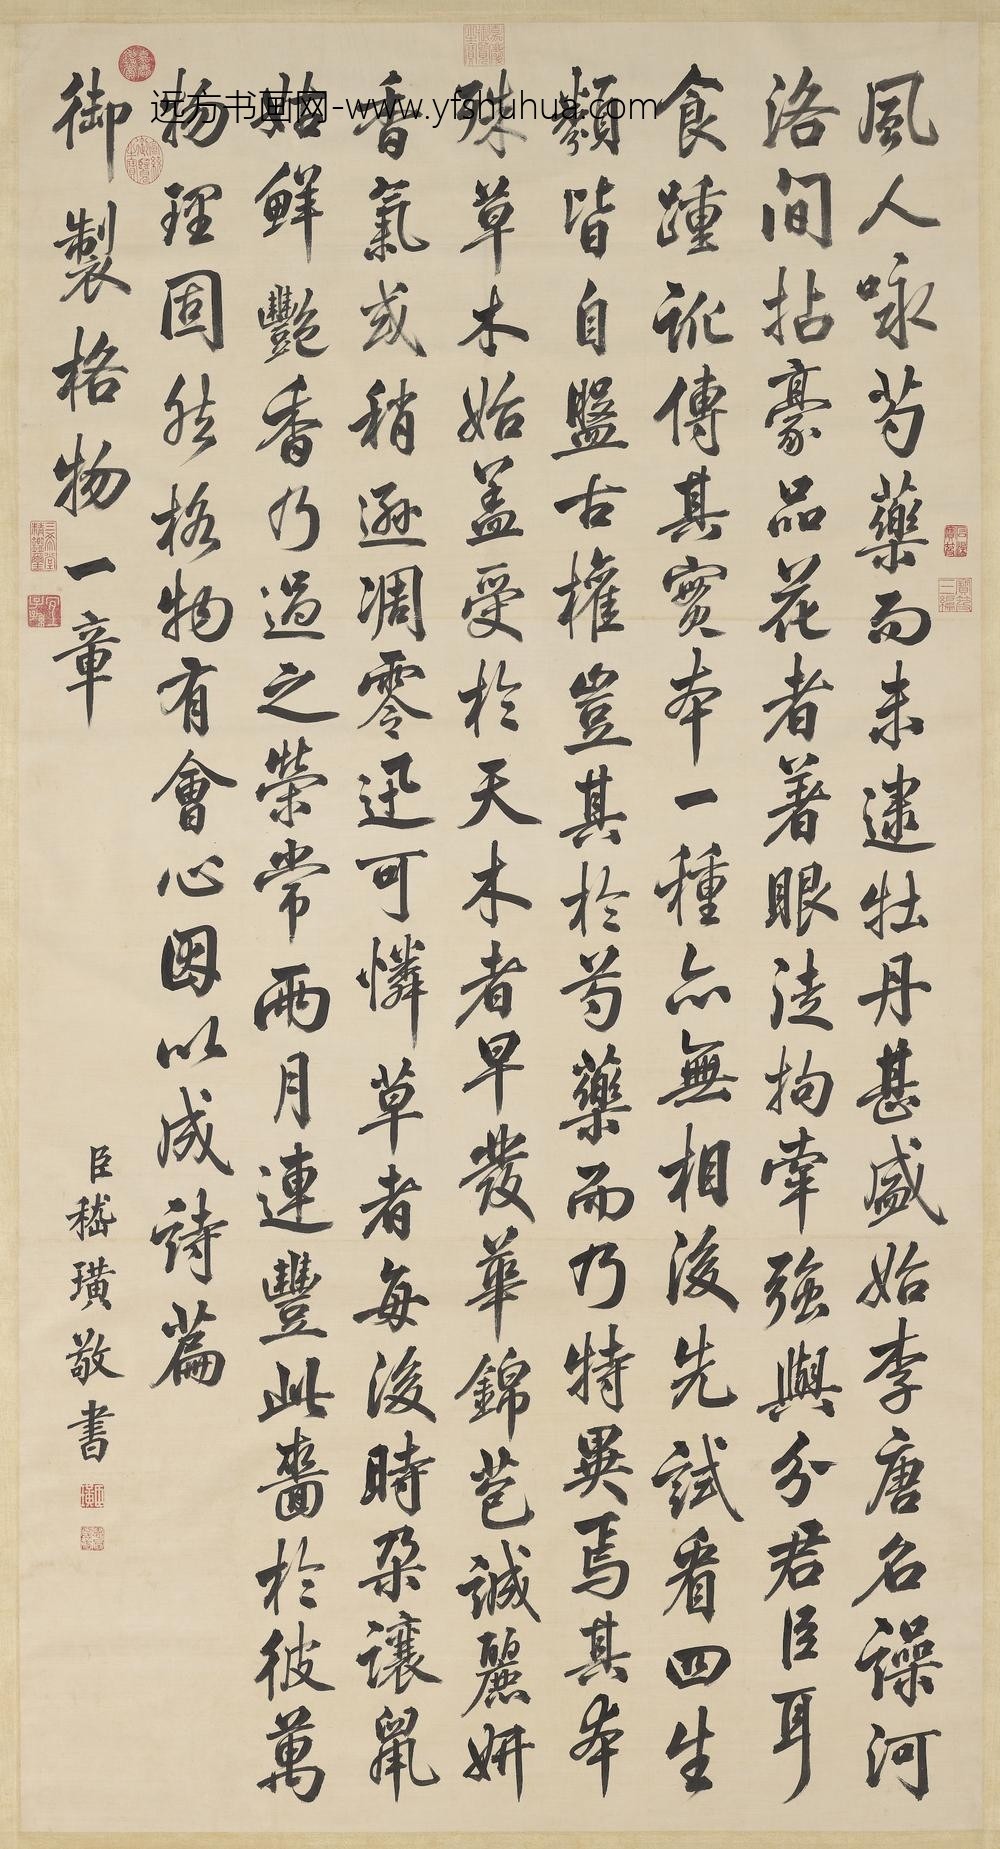 風人咏芍藥而未逮牡丹甚盛始李唐名譟河
洛間拈豪品花者著眼徒拘牽強與分君臣耳
食踵訛傳其實本一種亦無相後先試看四生
類皆自盤古權豈其於芍藥而乃特異焉其本
殊草木始蓋受於天木者早發華錦苞誠麗妍
香氣或稍遜凋零迅可憐草者每後時朶讓鼠
姑鮮艷香乃過之榮常兩月連豐此嗇於彼萬
物理固然格物有會心因以成詩篇
御製格物一章
臣嵇璜敬書
远方书画网-www.yfshuhua.com